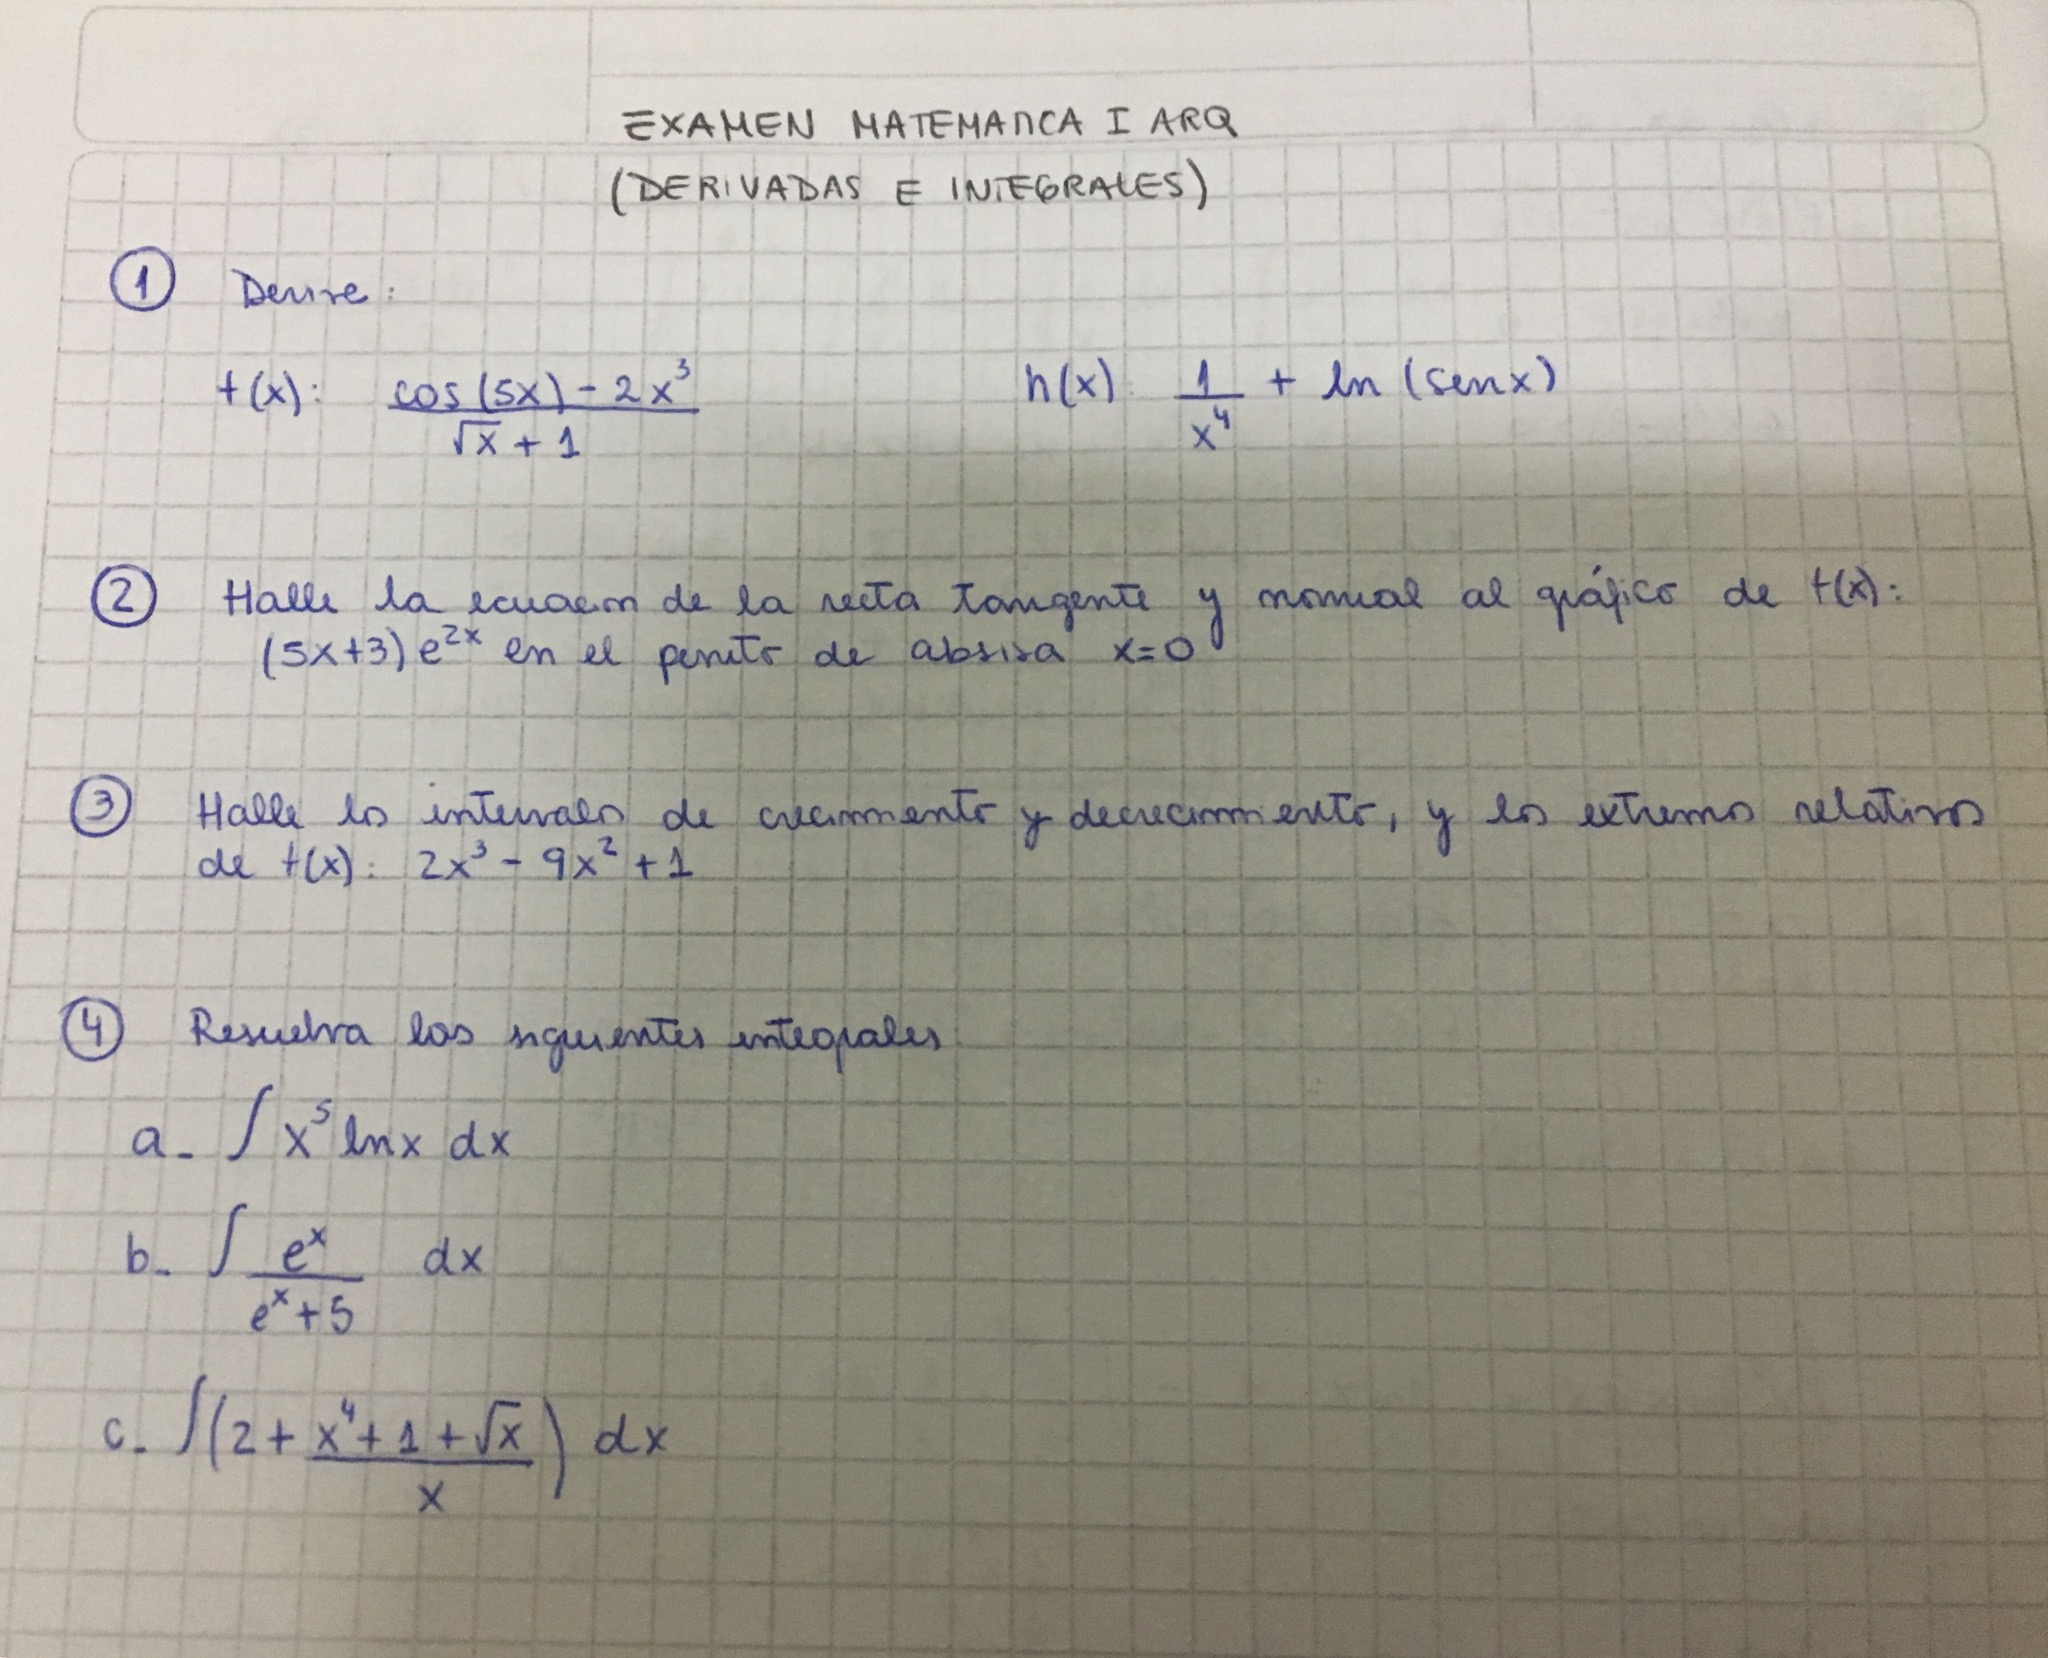 EXAMEN MATEMATICA I ARQ
(DERIVADAS E INTEGRALES)
① Derive:
f(x): cos(5x) - 2x³ / √x + 1    h(x): 1/x⁴ + ln (senx)
② Halle la ecuacion de la recta tangente y normal al gráfico de f(x):
(5x+3) e²ˣ en el punto de absisa x=0
③ Halle los intervalos de crecimiento y decrecimiento, y los extremos relativos
de f(x): 2x³ - 9x² + 1
④ Resuelva las siguientes integrales
a- ∫ x⁵ lnx dx
b- ∫ eˣ / eˣ + 5 dx
c- ∫ (2 + x⁴ + 1 + √x / x) dx